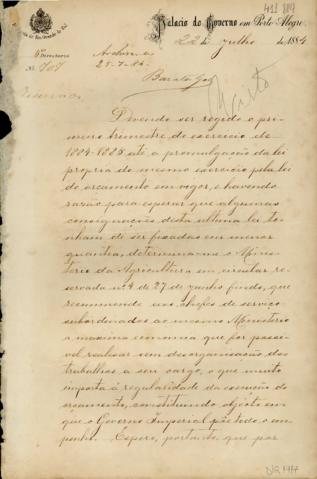 411 884
Palacio do Governo em Porto Alegre,
22 de Julho de 1884
4ª Directoria
Nº 707
Archive-se
25-7-84
Reservado
Visto
Devendo ser regido o pri-
meiro trimestre do exercicio de
1884-1885 até a promulgação da lei
propria do mesmo exercicio pela lei
do orçamento em vigor, e havendo
razão para esperar que algumas
consignações desta ultima lei te-
nham de ser fixadas em menor
quantia, determina-me o Minis-
terio da Agricultura em circular re-
servada nº 4 de 27 de junho findo, que
recommende aos chefes de serviço
subordinados ao mesmo Ministerio
a maxima economia que for possi-
vel realisar sem desorganisação dos
trabalhos a seu cargo, o que muito
importa á regularidade da execução do
orçamento, constituindo objecto em
que o Governo Imperial põe todo o em-
penho. Espero, portanto, que por